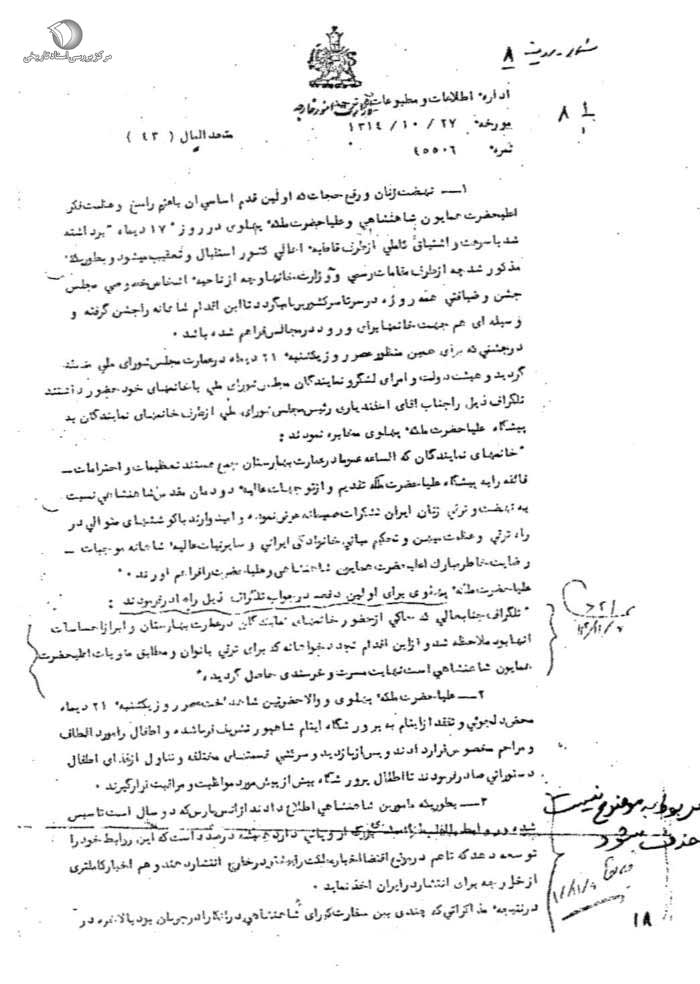 مرکز بررسی اسناد تاریخی
۸
وزارت امور خارجه
اداره اطلاعات و مطبوعات
مورخه ۲۷ / ۱۰ / ۱۳۱۴
نمره ٤٥٥٠٦
متحد المال ( ٤٣ )
۸ ۱/۱
۱ــ نهضت زنان و رفع حجاب که اولین قدم اساسی آن با عزم راسخ و عظمت فکر
اعلیحضرت همایون شاهنشاهی و علیاحضرت ملکه پهلوی در روز ۱۷ دیماه برداشته
شد با سرعت و اشتیاق کاملی از طرف قاطبه اهالی کشور استقبال و تعقیب میشود و بطوریکه
مذکور شد چه از طرف مقامات رسمی و وزارت خانها و چه از ناحیه اشخاص خصوصی مجلس
جشن و ضیافتی همه روزه در سرتاسر کشور برپا میگردد تا این اقدام شاهانه را جشن گرفته و
وسیله ای هم جهت خانمها برای ورود در مجالس فراهم شده باشد .
در جشنی که برای همین منظور عصر روز یکشنبه ۲۱ دیماه در عمارت مجلس شورای ملی منعقد
گردید و هیئت دولت و امرای لشگر و نمایندگان مجلس شورای ملی با خانمهای خود حضور داشتند
تلگراف ذیل را جناب آقای اسفندیاری رئیس مجلس شورای ملی از طرف خانمهای نمایندگان به
پیشگاه علیاحضرت ملکه پهلوی مخابره نمودند :
" خانمهای نمایندگان که الساعه عموما در عمارت بهارستان جمع هستند تعظیمات و احترامات ــ
فائقه را به پیشگاه علیاحضرت ملکه تقدیم و از توجهات عالیه دودمان مقدس شاهنشاهی نسبت
به نهضت و ترقی زنان ایران تشکرات صمیمانه عرض نموده و امیدوارند با کوششهای متوالی در
راه ترقی و عظمت میهن و تحکیم مبانی خانوادگی ایرانی و سایر نیات عالیه شاهانه موجبات ــ
رضایت خاطر مبارک اعلیحضرت همایون شاهنشاهی و علیاحضرت را فراهم آورند . "
علیاحضرت ملکه پهلوی برای اولین دفعه در جواب تلگراف ذیل را صادر فرمودند :
" تلگراف جنابعالی که حاکی از حضور خانمهای نمایندگان در عمارت بهارستان و ابراز احساسات
آنها بود ملاحظه شد و از این اقدام تجدد خواهانه که برای ترقی بانوان و مطابق منویات اعلیحضرت
همایون شاهنشاهی است نهایت مسرت و خرسندی حاصل گردید "
۲ــ علیاحضرت ملکه پهلوی و والاحضرتین شاهدخت عصر روز یکشنبه ۲۱ دیماه
محض دلجوئی و تفقد از ایتام به پرورشگاه ایتام شاهپور تشریف فرما شده و اطفال را مورد الطاف
و مراحم مخصوص قرار دادند و پس از بازدید و سرکشی قسمتهای مختلفه و تناول از غذای اطفال
دستوراتی صادر فرمودند تا اطفال پرورشگاه بیش از پیش مورد مواظبت و مراقبت قرار گیرند .
۳ــ بطوریکه مامورین شاهنشاهی اطلاع دارند آژانس پارس که دو سال است تاسیس
شده و روابط با آژانسهای اروپائی دارد همیشه درصدد است که این روابط خود را
توسعه دهد که تا هم در موقع اقتضا اخبار مملکت را بیشتر در خارج انتشار دهد و هم اخبار کاملتری
از خارجه برای انتشار در ایران اخذ نماید .
در نتیجه مذاکراتی که چندی بین سفارت کبرای شاهنشاهی در آنکارا در جریان بود بالاخره در
مربوط به موضوع نیست
حذف میشود
۱۸